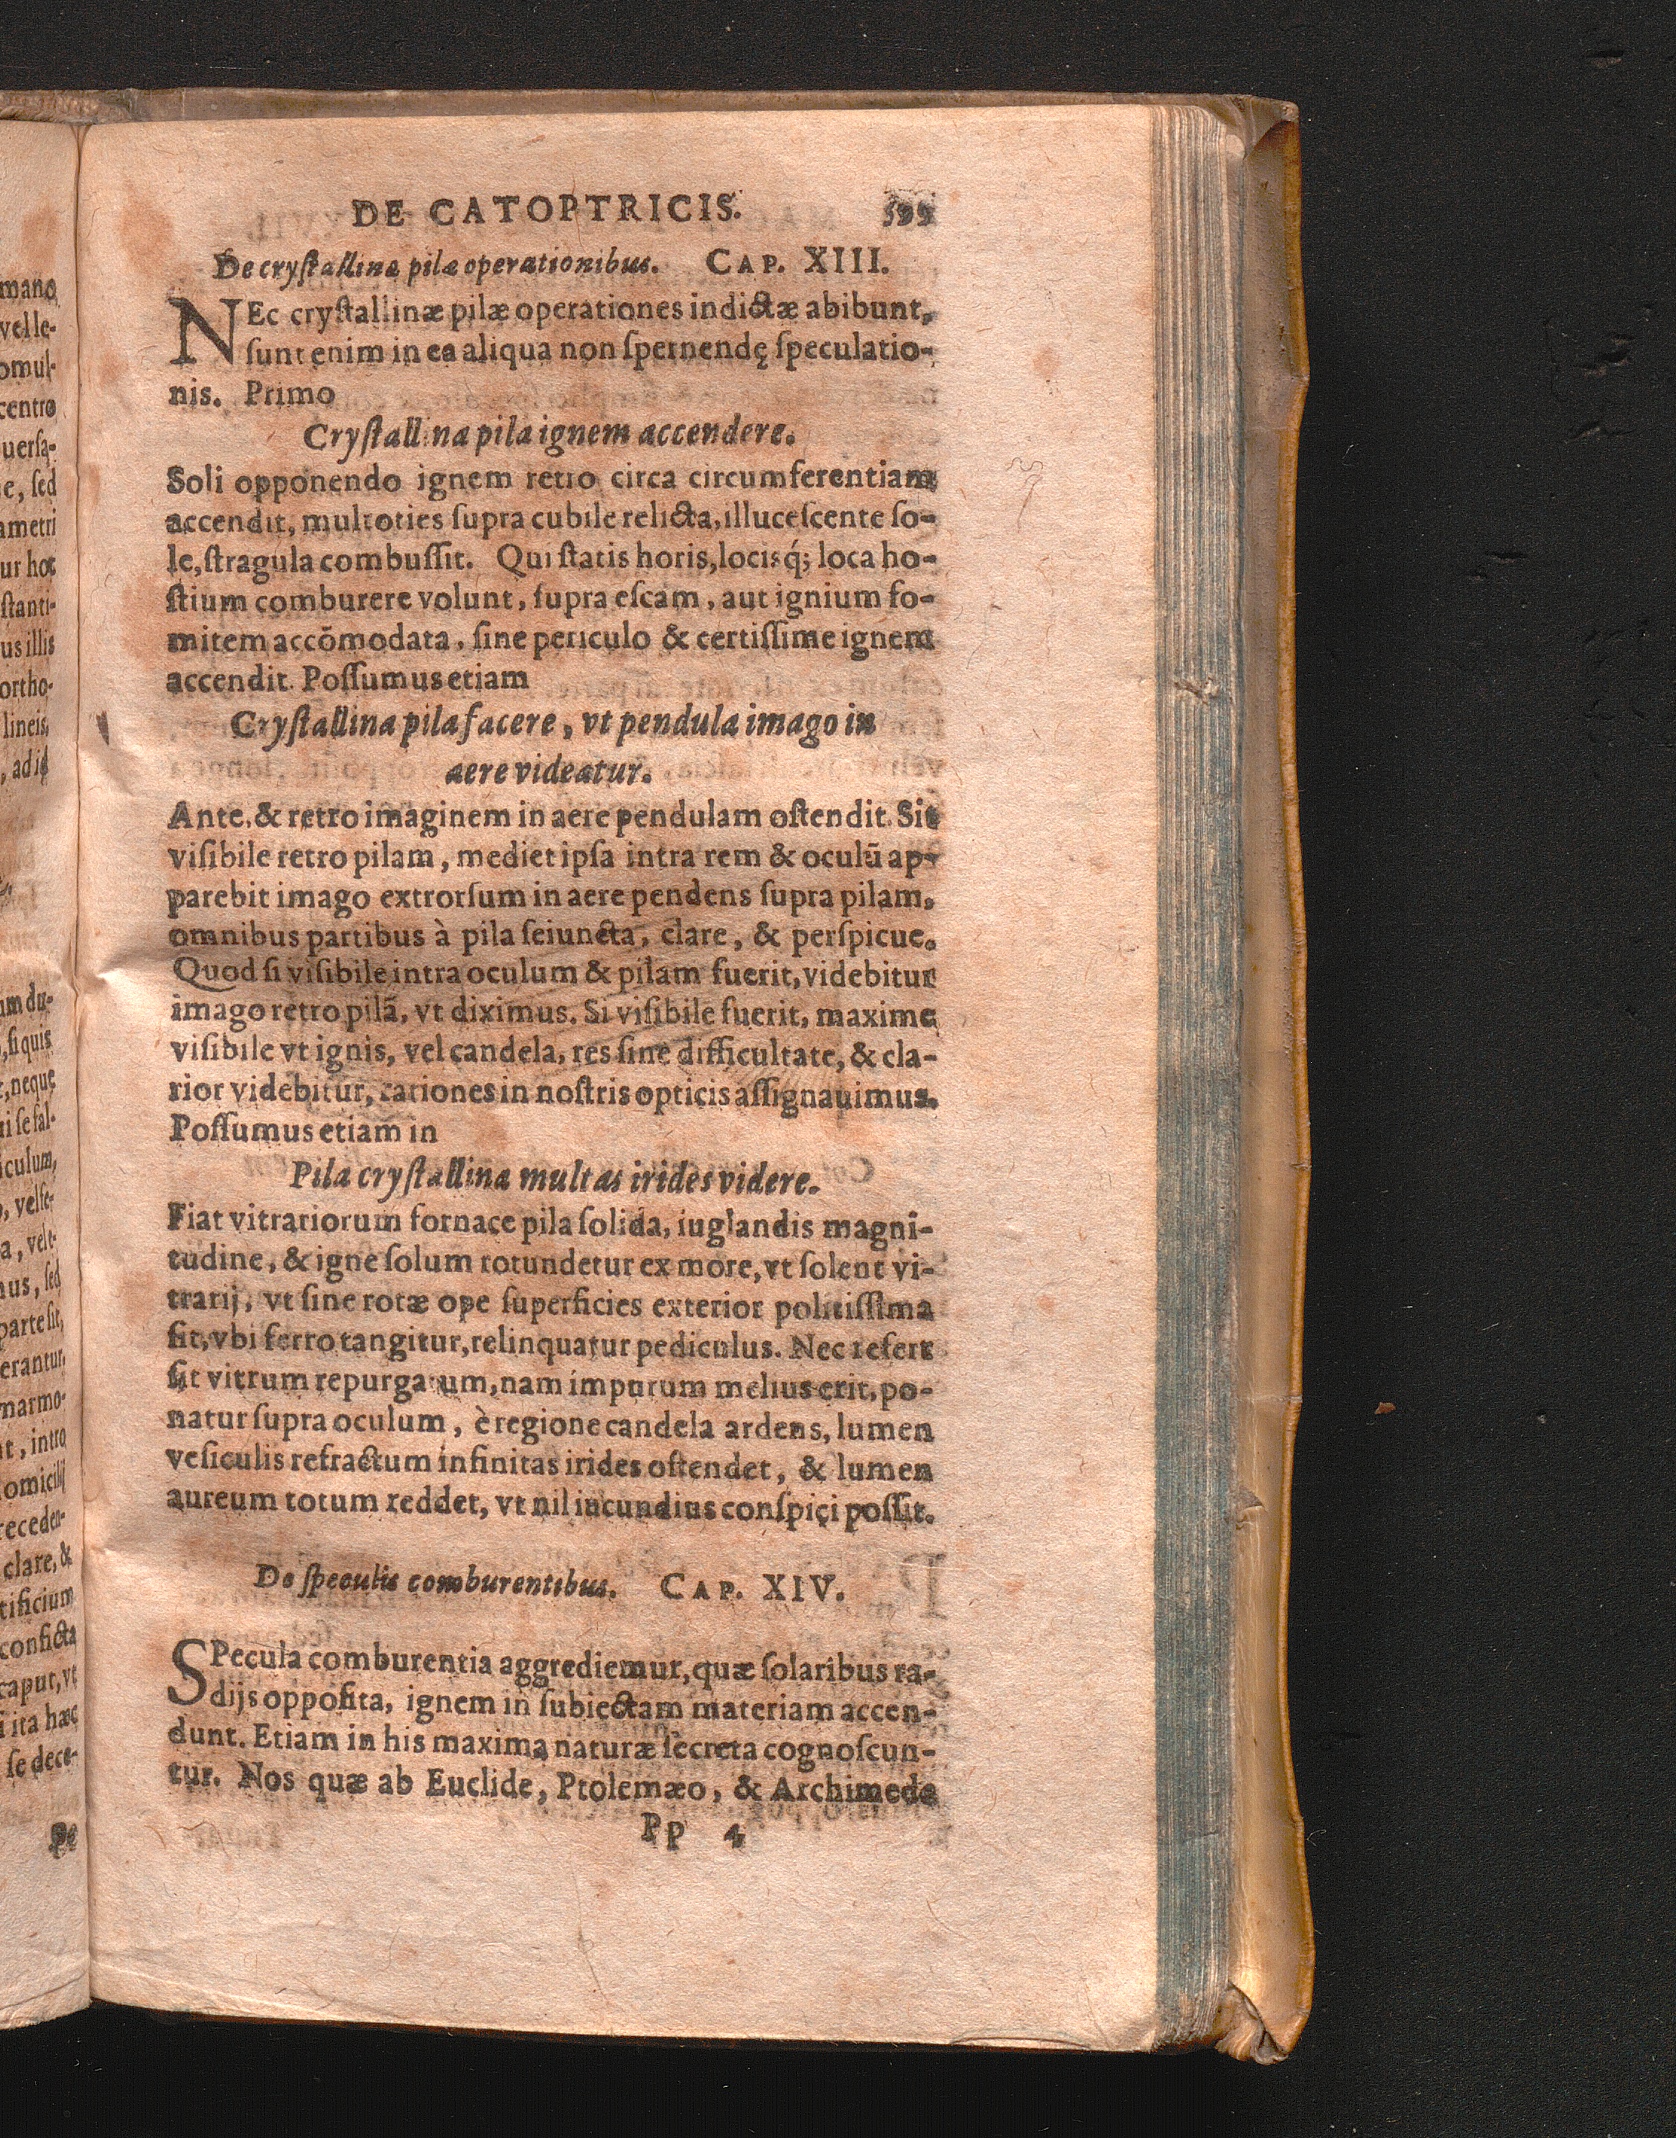 DE CATOPTRICIS. 599
De cryſtallinæ pilæ operationibus. CAP. XIII.
NEc cryſtallinæ pilæ operationes indictæ abibunt,
ſunt enim in ea aliqua non ſpernendę ſpeculatio-
nis. Primo
Cryſtallina pila ignem accendere.
Soli opponendo ignem retro circa circumferentiam
accendit, multoties ſupra cubile relicta, illuceſcente ſo-
le, ſtragula combuſſit. Qui ſtatis horis, locisq́; loca ho-
ſtium comburere volunt, ſupra eſcam, aut ignium fo-
mitem accōmodata, ſine periculo & certiſſime ignem
accendit. Poſſumus etiam
Cryſtallina pila facere, vt pendula imago in
aere videatur.
Ante, & retro imaginem in aere pendulam oſtendit. Sit
viſibile retro pilam, mediet ipſa intra rem & oculū ap-
parebit imago extrorſum in aere pendens ſupra pilam,
omnibus partibus à pila ſeiuncta, clare, & perſpicue.
Quod ſi viſibile intra oculum & pilam fuerit, videbitur
imago retro pilā, vt diximus. Si viſibile fuerit, maxime
viſibile vt ignis, vel candela, res ſine difficultate, & cla-
rior videbitur, rationes in noſtris opticis aſſignauimus.
Poſſumus etiam in
Pila cryſtallina multas irides videre.
Fiat vitrariorum fornace pila ſolida, iuglandis magni-
tudine, & igne ſolum rotundetur ex more, vt ſolent vi-
trarij, vt ſine rotæ ope ſuperficies exterior politiſſima
ſit, vbi ferro tangitur, relinquatur pediculus. Nec refert
ſit vitrum repurgatum, nam impurum melius erit, po-
natur ſupra oculum, è regione candela ardens, lumen
veſiculis refractum infinitas irides oſtendet, & lumen
aureum totum reddet, vt nil iucundius conſpici poſſit.
De ſpeculis comburentibus. CAP. XIV.
SPecula comburentia aggrediemur, quæ ſolaribus ra-
dijs oppoſita, ignem in ſubiectam materiam accen-
dunt. Etiam in his maxima naturæ ſecreta cognoſcun-
tur. Nos quæ ab Euclide, Ptolemæo, & Archimede
Pp 4